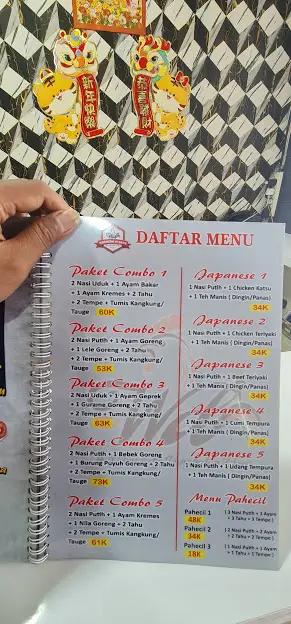 新年快樂
恭喜發財
DAFTAR MENU
Paket Combo 1
2 Nasi Uduk + 1 Ayam Bakar
+ 1 Ayam Kremes + 2 Tahu
+ 2 Tempe + Tumis Kangkung/
Tauge 60K
Paket Combo 2
2 Nasi Putih + 1 Ayam Goreng
+ 1 Lele Goreng + 2 Tahu
+ 2 Tempe + Tumis Kangkung/
Tauge 53K
Paket Combo 3
2 Nasi Uduk + 1 Ayam Geprek
+ 1 Gurame Goreng + 2 Tahu
+ 2 Tempe + Tumis Kangkung/
Tauge 63K
Paket Combo 4
2 Nasi Putih + 1 Bebek Goreng
+ 1 Burung Puyuh Goreng + 2 Tahu
+ 2 Tempe + Tumis Kangkung/
Tauge 73K
Paket Combo 5
2 Nasi Putih + 1 Ayam Kremes
+ 1 Nila Goreng + 2 Tahu
+ 2 Tempe + Tumis Kangkung/
Tauge 61K
Japanese 1
1 Nasi Putih + 1 Chicken Katsu
+ 1 Teh Manis (Dingin/Panas)
34K
Japanese 2
1 Nasi Putih + 1 Chicken Teriyaki
+ 1 Teh Manis ( Dingin/Panas)
34K
Japanese 3
1 Nasi Putih + 1 Beef Teriyaki
+ 1 Teh Manis (Dingin/Panas)
34K
Japanese 4
1 Nasi Putih + 1 Cumi Tempura
+ 1 Teh Manis (Dingin/Panas)
34K
Japanese 5
1 Nasi Putih + 1 Udang Tempura
+ 1 Teh Manis (Dingin/Panas)
34K
Menu Pahecil
Pahecil 1 ( 3 Nasi Putih + 3 Ayam
48K + 3 Tahu + 3 Tempe )
Pahecil 2 ( 2 Nasi Putih + 2 Ayam
34K + 2 Tahu + 2 Tempe )
Pahecil 3 ( 1 Nasi Putih + 1 Ayam
18K + 1 Tahu + 1 Tempe )